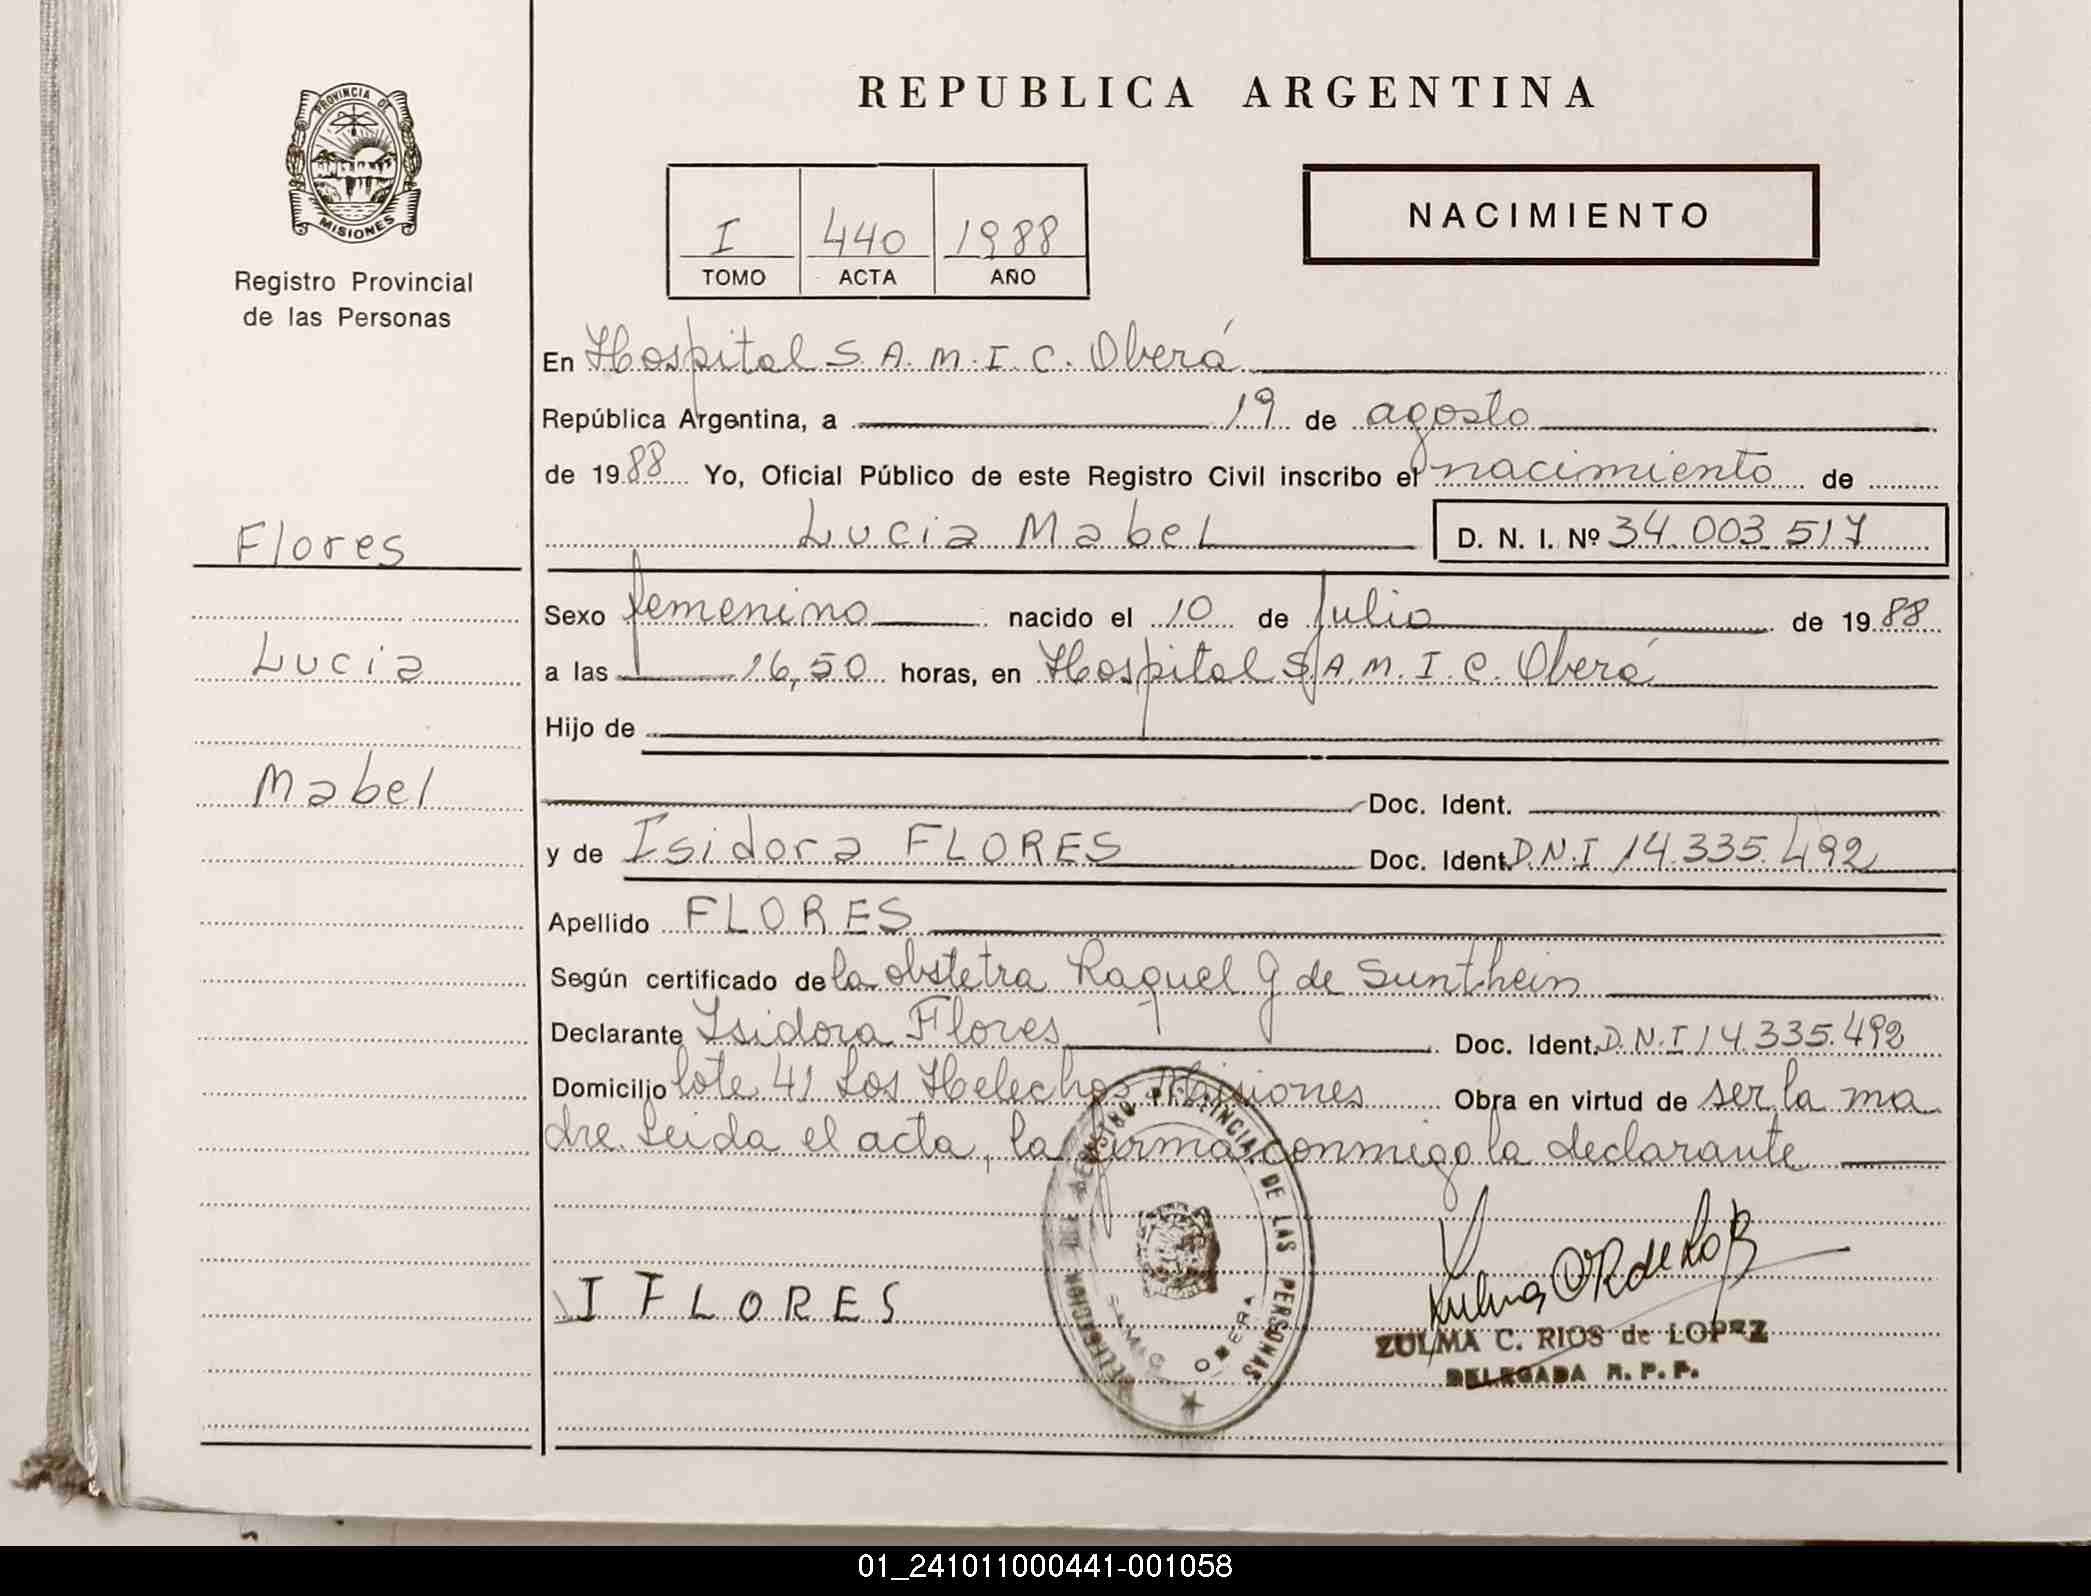 PROVINCIA DE
MISIONES
Registro Provincial
de las Personas
Flores
Lucia
Mabel
REPUBLICA ARGENTINA
I 440 1988
TOMO ACTA AÑO
NACIMIENTO
En Hospital S.A.M.I.C. Oberá
República Argentina, a 19 de agosto
de 1988 Yo, Oficial Público de este Registro Civil inscribo el nacimiento de
Lucia Mabel D. N. I. Nº 34.003.517
Sexo femenino nacido el 10 de Julio de 1988
a las 16,50 horas, en Hospital S.A.M.I.C. Oberá
Hijo de
Doc. Ident.
y de Isidora FLORES Doc. Ident. D.N.I 14.335.492
Apellido FLORES
Según certificado de la obstetra Raquel G de Sunthein
Declarante Isidora Flores Doc. Ident. D.N.I 14.335.492
Domicilio lote 41 Los Helechos Misiones Obra en virtud de ser la ma
dre. Leida el acta, la firma conmigo la declarante
I FLORES
REGISTRO PROVINCIAL DE LAS PERSONAS
OBERA
ZULMA C. RIOS de LOPEZ
DELEGADA R. P. P.
01_241011000441-001058